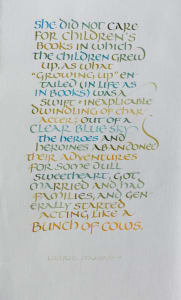 SHE DID NOT CARE
FOR CHILDREN'S
BOOKS IN WHICH
THE CHILDREN GREW
UP, AS WHAT
"GROWING UP" EN-
TAILED (IN LIFE AS
IN BOOKS) WAS A
SWIFT & INEXPLICABLE
DWINDLING OF CHAR-
ACTER; OUT OF A
CLEAR BLUE SKY
THE HEROES AND
HEROINES ABANDONED
THEIR ADVENTURES
FOR SOME DULL
SWEETHEART, GOT
MARRIED AND HAD
FAMILIES, AND GEN-
ERALLY STARTED
ACTING LIKE A
BUNCH OF COWS.